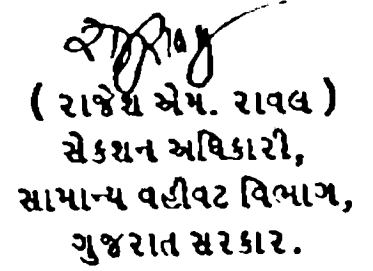 ( રાજેશ એમ. રાવલ )
સેકશન અધિકારી,
સામાન્ય વહીવટ વિભાગ,
ગુજરાત સરકાર.